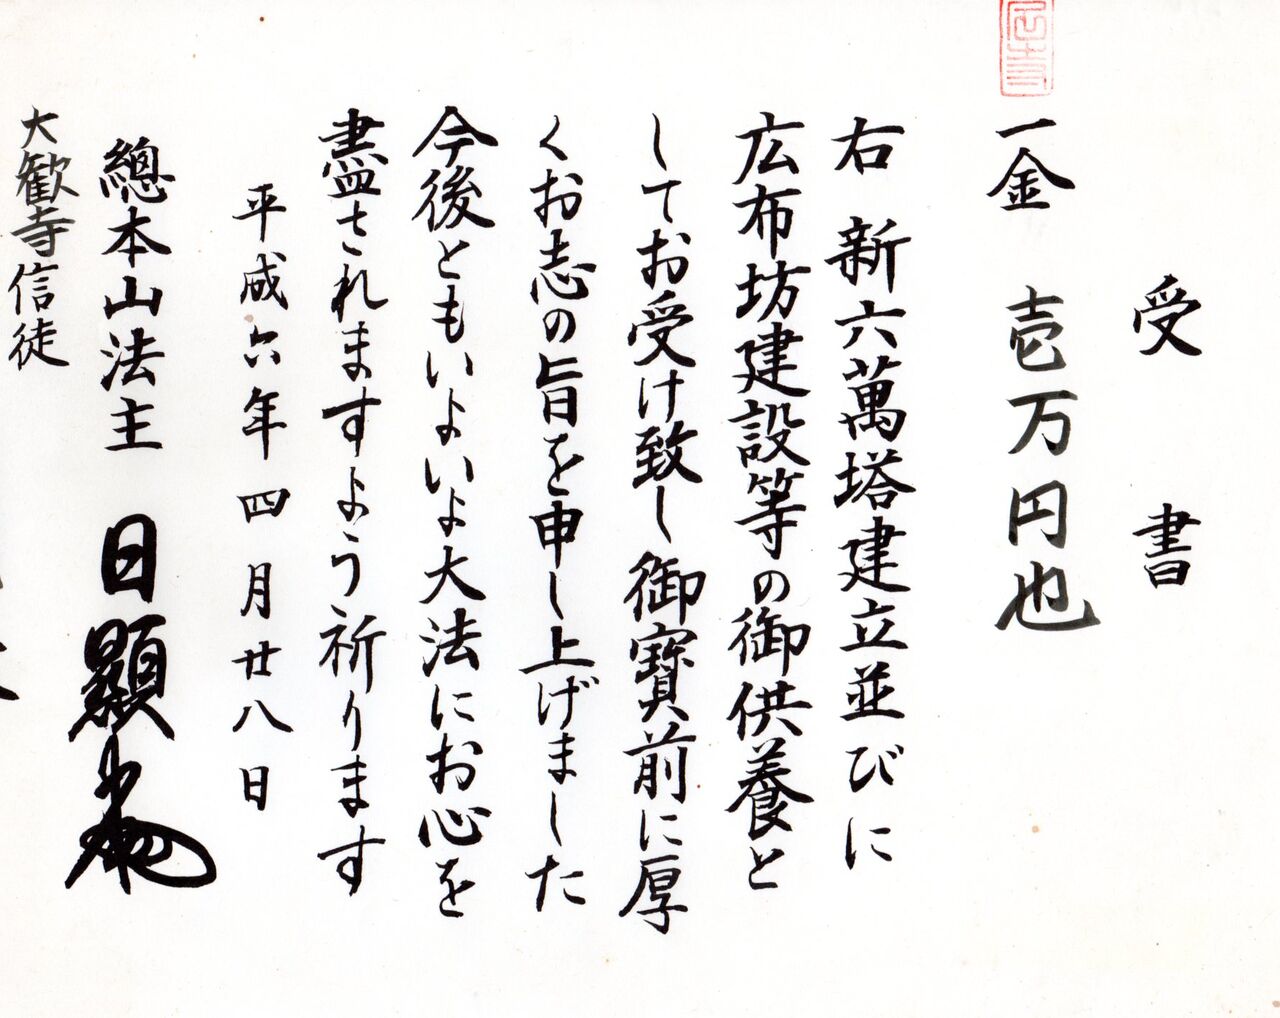 受書
一金 壱万円也
右 新六萬塔建立並びに
広布坊建設等の御供養と
してお受け致し御寳前に厚
くお志の旨を申し上げました
今後ともいよいよ大法にお心を
盡されますよう祈ります
平成六年四月廿八日
總本山法主 日顯
大歓寺信徒